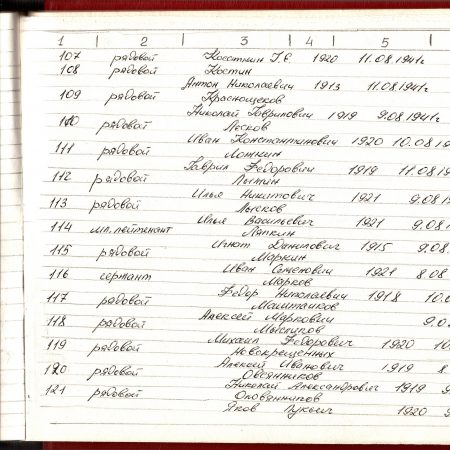 1 | 2 | 3 | 4 | 5
107 рядовой Косткин Г.Е. 1920 11.08.1941г
108 рядовой Костин
Антон Николаевич 1913 11.08.1941г
109 рядовой Краснощеков
Николай Гаврилович 1919 9.08.1941г
110 рядовой Лесков
Иван Константинович 1920 10.08.19
111 рядовой Ломкин
Гаврил Федорович 1919 11.08.19
112 рядовой Лымин
Илья Никитович 1921 9.08.19
113 рядовой Лысков
Илья Васильевич 1921 9.08.
114 мл. лейтенант Ляпкин
Игнат Данилович 1915 9.08.
115 рядовой Маркин
Иван Семенович 1921 8.08
116 сержант Марков
Федор Николаевич 1918 10.0
117 рядовой Машталков
Алексей Маркович 9.0
118 рядовой Мысликов
Михаил Федорович 1920 10
119 рядовой Новокрещенных
Алексей Иванович 1919 8.
120 рядовой Овсянников
Николай Александрович 1919 9
121 рядовой Оловянников
Яков Лукьич 1920 9